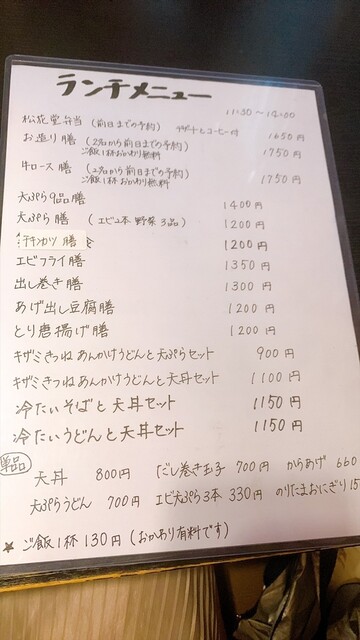 ランチメニュー
11:30〜14:00
松花堂弁当 (前日までの予約) デザートとコーヒー付 1650円
お造り膳 (2名から前日までの予約) ご飯1杯おかわり無料 1750円
牛ロース膳 (2名から前日までの予約) ご飯1杯おかわり無料 1750円
天ぷら9品膳 1400円
天ぷら膳 (エビ2本 野菜3品) 1200円
チキンカツ膳 1200円
エビフライ膳 1350円
出し巻き膳 1300円
あげ出し豆腐膳 1200円
とり唐揚げ膳 1200円
キザミきつねあんかけうどんと天ぷらセット 900円
キザミきつねあんかけうどんと天丼セット 1100円
冷たいそばと天丼セット 1150円
冷たいうどんと天丼セット 1150円
単品
天丼 800円 だし巻き玉子 700円 からあげ 660
天ぷらうどん 700円 エビ天ぷら3本 330円 のりたまおにぎり 15
★ご飯1杯130円 (おかわり有料です)